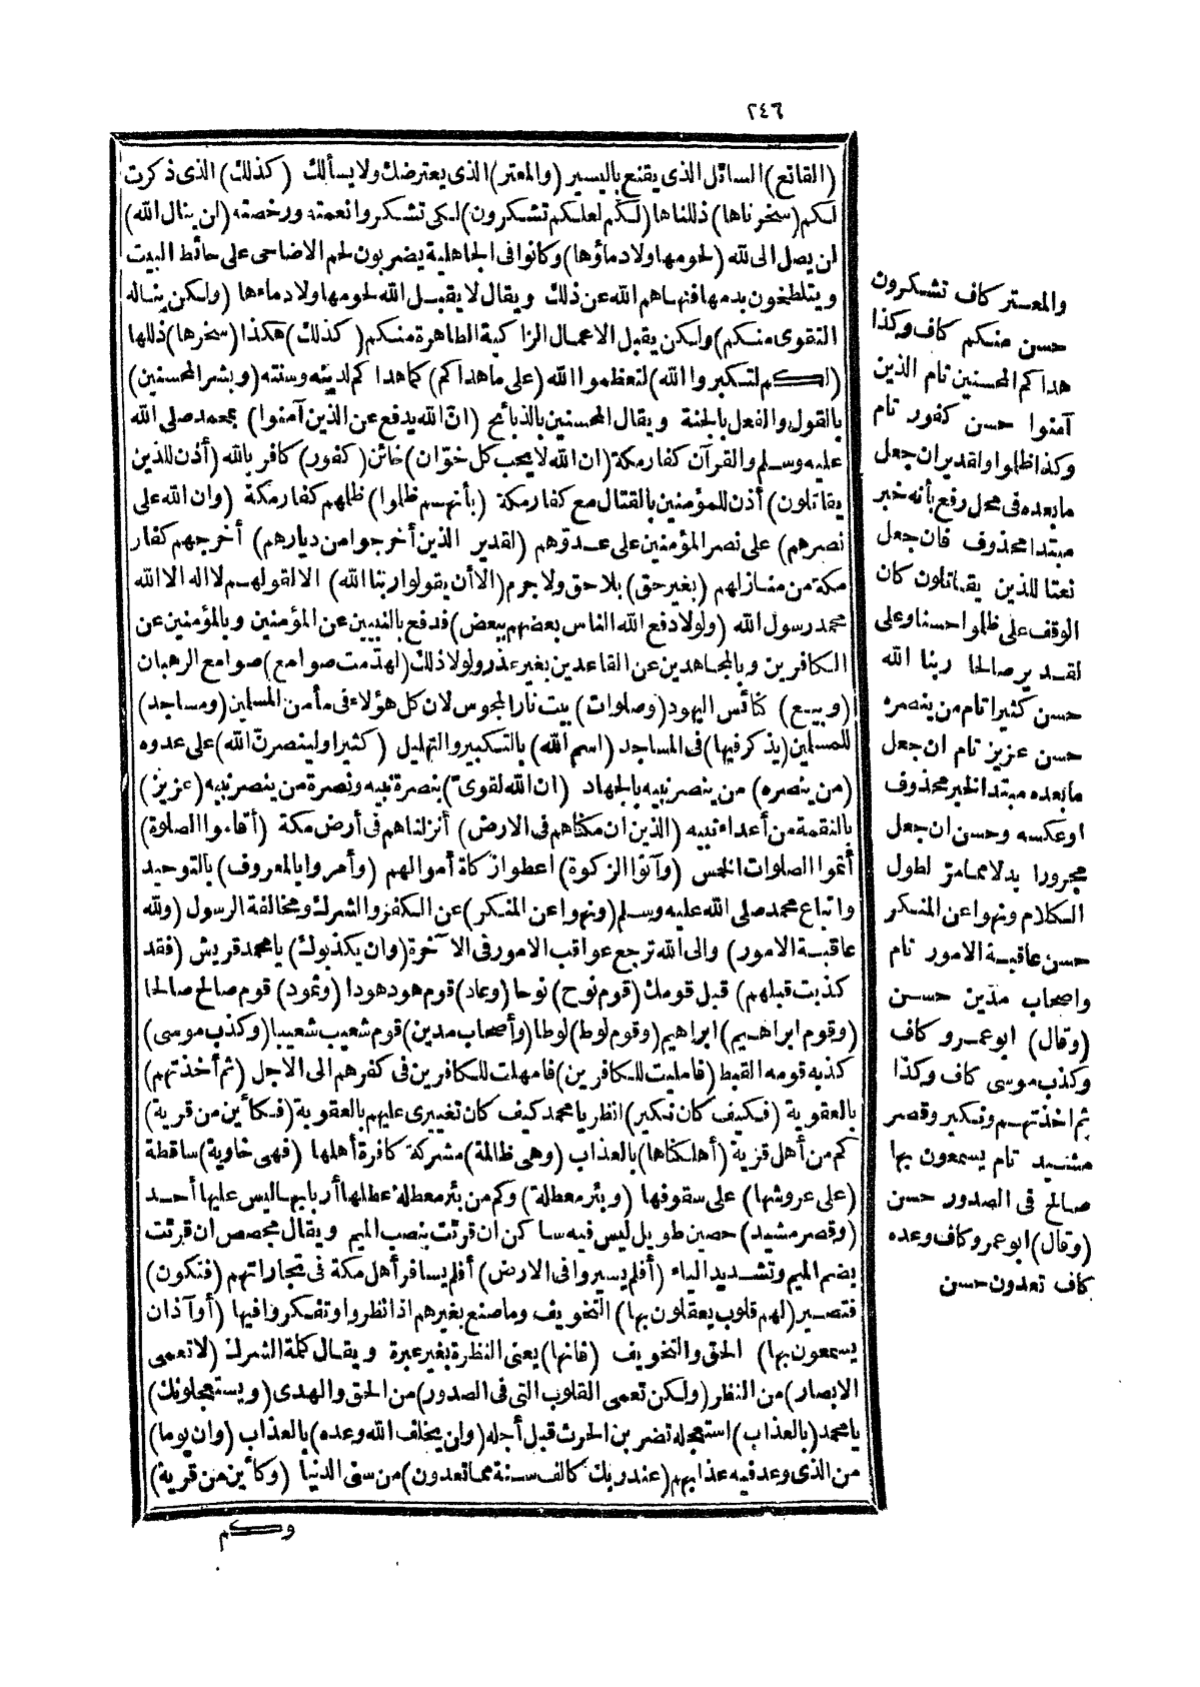 ٢٤٦
(القانع) السائل الذى يقنع باليسير (والمعتر) الذى يعترضك ولا يسألك (كذلك) الذى ذكرت
لكم (سخرناها) ذللناها (لكم لعلكم تشكرون) لكى تشكروا نعمته ورخصته (لن ينال الله)
لن يصل الى لله (لحومها ولا دماؤها) وكانوا فى الجاهلية يضربون لحم الاضاحى على حائط البيت
ويتلطخون بدمها فنهاهم الله عن ذلك ويقال لا يقبل الله لحومها ولا دماءها (ولكن يناله
التقوى منكم) ولكن يقبل الاعمال الزاكية الطاهرة منكم (كذلك) هكذا (سخرها) ذللها
(لكم لتكبروا الله) لتعظموا الله (على ما هداكم) كما هداكم لدينه وسنته (وبشر المحسنين)
بالقول والفعل بالجنة ويقال المحسنين بالذبائح (ان الله يدفع عن الذين آمنوا) بمحمد صلى الله
عليه وسلم والقرآن كفار مكة (ان الله لا يحب كل خوّان) خائن (كفور) كافر بالله (أذن للذين
يقاتلون) أذن للمؤمنين بالقتال مع كفار مكة (بأنهم ظلموا) ظلمهم كفار مكة (وان الله على
نصرهم) على نصر المؤمنين على عدوّهم (لقدير الذين أخرجوا من ديارهم) أخرجهم كفار
مكة من منازلهم (بغير حق) بلا حق ولا جرم (الا أن يقولوا ربنا الله) الا لقولهم لا اله الا الله
محمد رسول الله (ولولا دفع الله الناس بعضهم ببعض) فدفع بالنبيين عن المؤمنين وبالمؤمنين عن
الكافرين وبالمجاهدين عن القاعدين بغير عذر ولولا ذلك (لهدّمت صوامع) صوامع الرهبان
(وبيع) كنائس اليهود (وصلوات) بيت نار المجوس لان كل هؤلاء فى مأمن المسلمين (ومساجد)
للمسلمين (يذكر فيها) فى المساجد (اسم الله) بالتكبير والتهليل (كثيرا ولينصرنّ الله) على عدوه
(من ينصره) من ينصر نبيه بالجهاد (ان الله لقوىّ) بنصرة نبيه ونصرة من ينصر نبيه (عزيز)
بالنقمة من أعداء نبيه (الذين ان مكناهم فى الارض) أنزلناهم فى أرض مكة (أقاموا الصلوة)
أتموا الصلوات الخمس (وآتوا الزكوة) اعطوا زكاة أموالهم (وأمروا بالمعروف) بالتوحيد
واتباع محمد صلى الله عليه وسلم (ونهوا عن المنكر) عن الكفر والشرك ومخالفة الرسول (ولله
عاقبة الامور) والى الله ترجع عواقب الامور فى الآخرة (وان يكذبوك) يا محمد قريش (فقد
كذبت قبلهم) قبل قومك (قوم نوح) نوحا (وعاد) قوم هود هودا (وثمود) قوم صالح صالحا
(وقوم ابراهيم) ابراهيم (وقوم لوط) لوطا (وأصحاب مدين) قوم شعيب شعيبا (وكذب موسى)
كذبه قومه القبط (فامليت للكافرين) فامهلت للكافرين فى كفرهم الى الاجل (ثم أخذتهم)
بالعقوبة (فكيف كان نكير) انظر يا محمد كيف كان تغييرى عليهم بالعقوبة (فكأين من قرية)
كم من أهل قرية (أهلكناها) بالعذاب (وهى ظالمة) مشركة كافرة أهلها (فهى خاوية) ساقطة
(على عروشها) على سقوفها (وبئر معطلة) وكم من بئر معطلة عطلها أربابها ليس عليها أحد
(وقصر مشيد) حصين طويل ليس فيه ساكن ان قرئت بنصب الميم ويقال مجصص ان قرئت
بضم الميم وتشديد الياء (أفلم يسيروا فى الارض) أفلم يسافر أهل مكة فى تجاراتهم (فتكون)
فتصير (لهم قلوب يعقلون بها) التخويف وما صنع بغيرهم اذا نظروا وتفكروا فيها (أو آذان
يسمعون بها) الحق والتخويف (فانها) يعنى النظرة بغير عبرة ويقال كلمة الشرك (لا تعمى
الابصار) من النظر (ولكن تعمى القلوب التى فى الصدور) من الحق والهدى (ويستعجلونك)
يا محمد (بالعذاب) استعجله نضر بن الحرث قبل أجله (ولن يخلف الله وعده) بالعذاب (وان يوما)
من الذى وعد فيه عذابهم (عند ربك كالف سنة مما تعدون) من سنى الدنيا (وكأين من قرية)
وكم
والمعتر كاف تشكرون
حسن منكم كاف وكذا
هداكم المحسنين تام الذين
آمنوا حسن كفور تام
وكذا ظلموا ولقدير ان جعل
ما بعده فى محل رفع بأنه خبر
مبتدا محذوف فان جعل
نعتا للذين يقاتلون كان
الوقف على ظلموا حسنا وعلى
لقدير صالحا ربنا الله
حسن كثيرا تام من ينصره
حسن عزيز تام ان جعل
ما بعده مبتدا لخبر محذوف
او عكسه وحسن ان جعل
مجرورا بدلا مما مرّ لطول
الكلام ونهوا عن المنكر
حسن عاقبة الامور تام
واصحاب مدين حسن
(وقال) ابو عمرو كاف
وكذب موسى كاف وكذا
ثم اخذتهم ونكير وقصر
مشيد تام يسمعون بها
صالح فى الصدور حسن
(وقال) ابو عمرو كاف وعده
كاف تعدون حسن